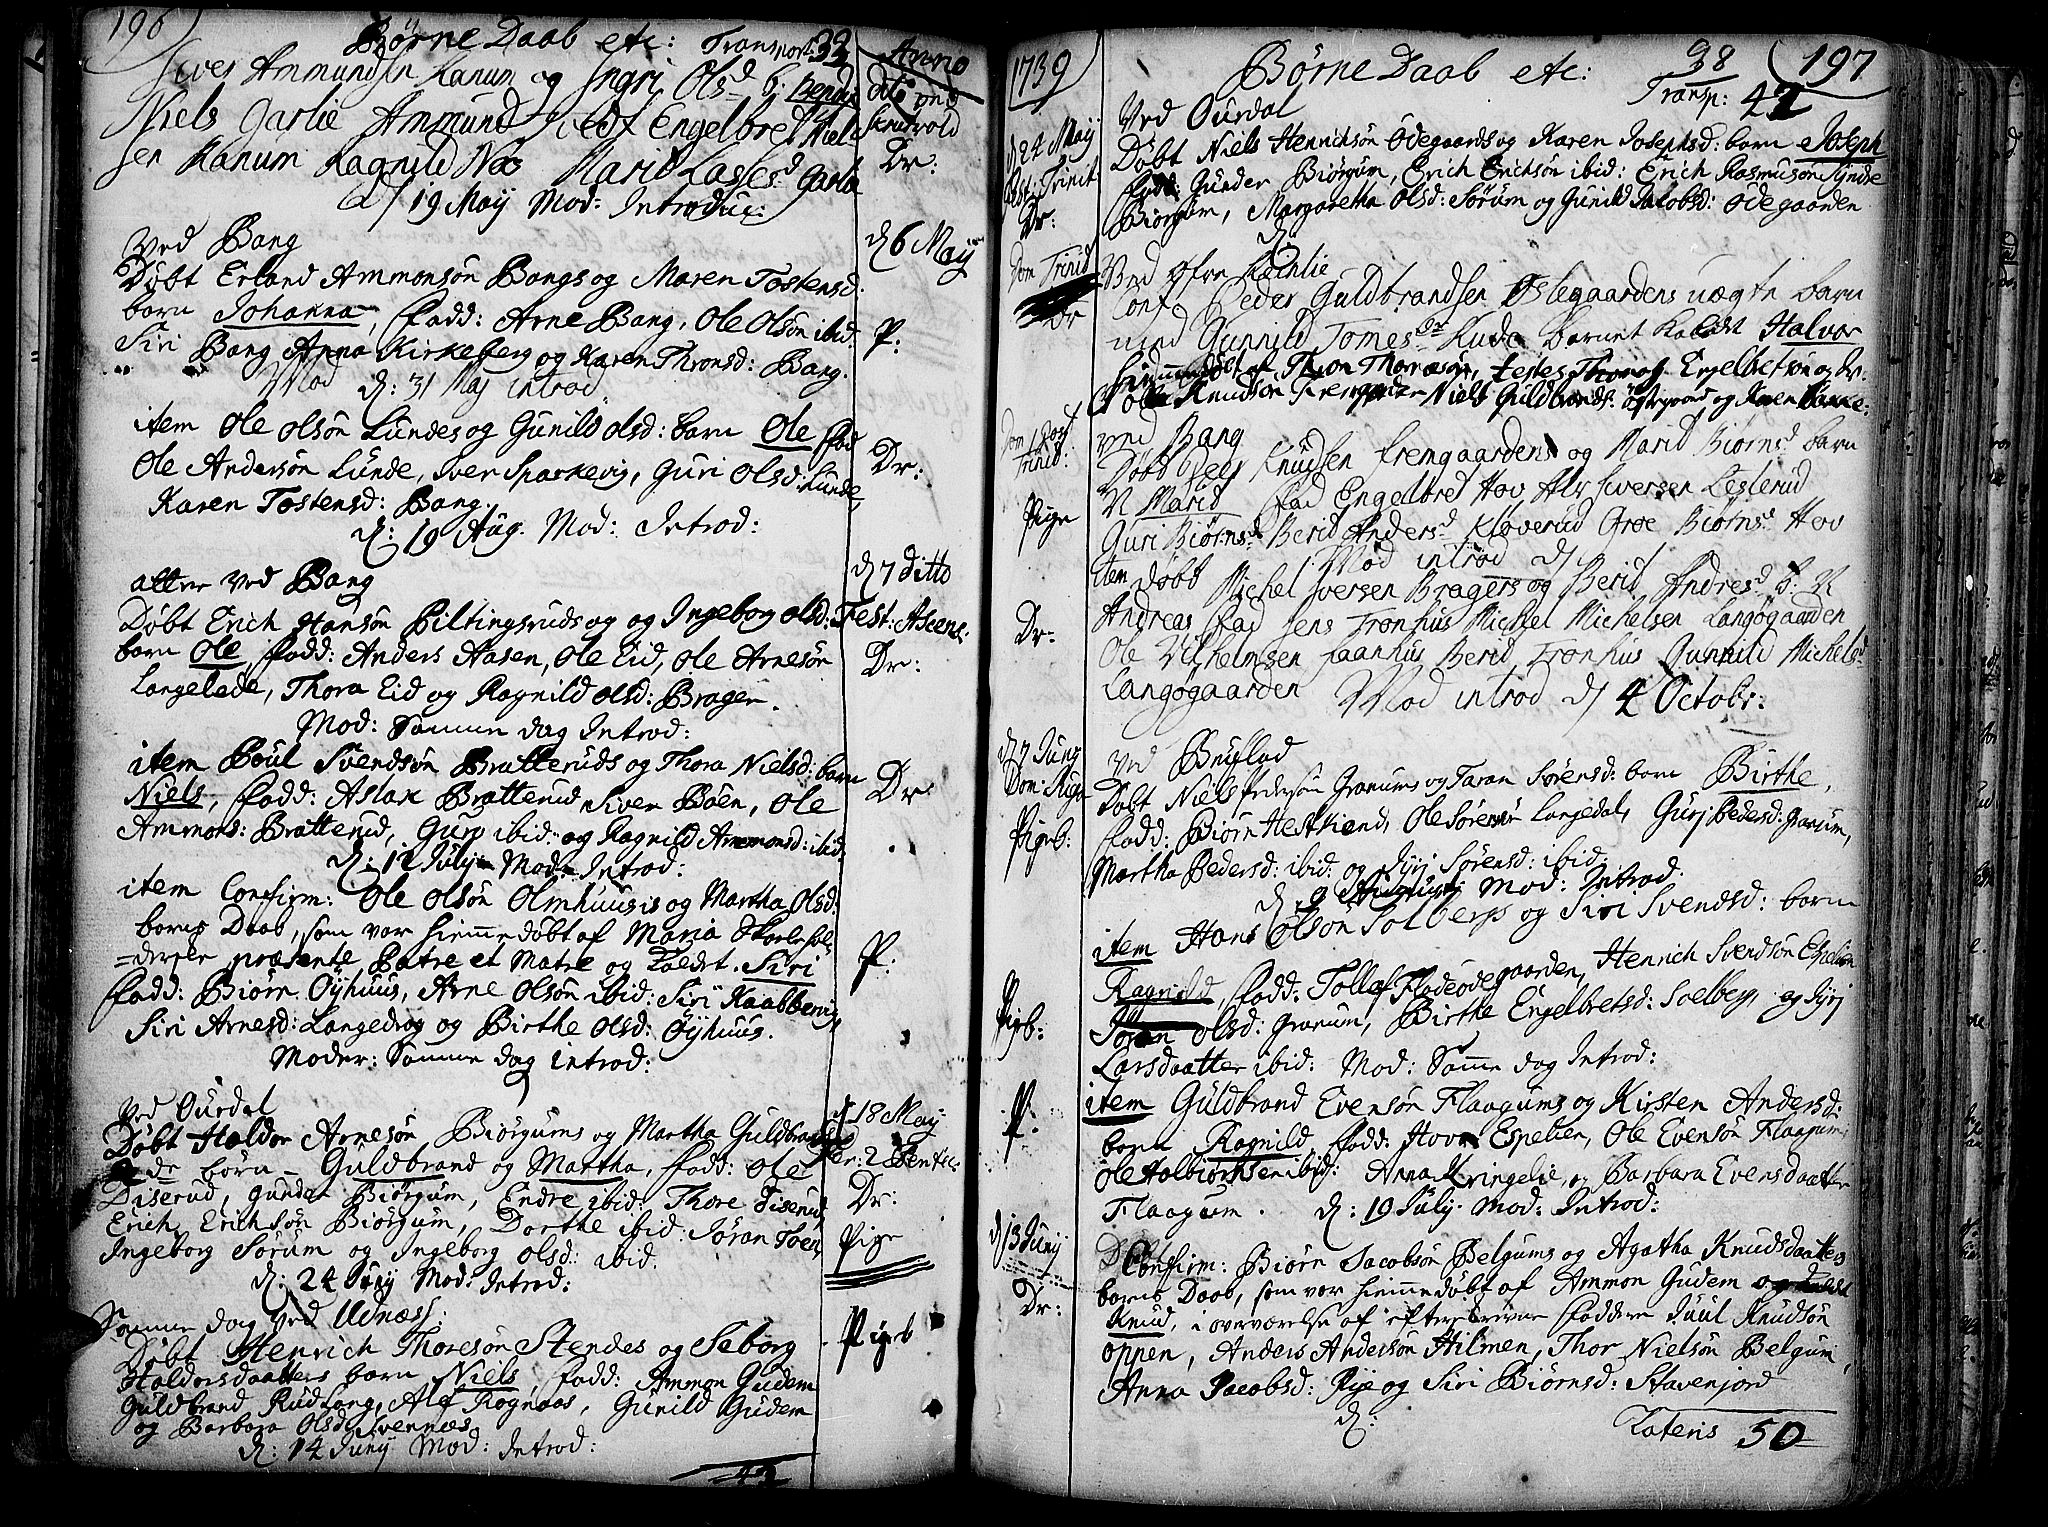 196
Børne Daab etc: Transport: 33
Anno
Iver Ammundsen Hanum og Ingri Olsd b: Bendix
dito ved
Niels Garlie Ammund Engelbret Niel-
Skrutvold
sen Hanum Ragnild Marid Lassesd Garlie
Dr:
D 19 Maÿ Mod: Introduc:
Ved Bang
d 6 Maÿ
Døbt Erland Ammonsøn Bangs og Maren Tostensd:
barn Johanna, Fadd: Arne Bang, Ole Olsøn ibid:
P:
Siri Bang Anna Kirkeberg og Karen Thronsd: Bang.
Mod d: 31 Maj introd
item Ole Olsøn Lundes og Gunild Olsd: barn Ole Fad
Dr:
Ole Andersøn Lunde, Iver Sparkevig, Guri Olsd: Lunde
Karen Tostensd: Bang.
d: 19 Aug. Mod: Introd:
d 7 ditto
atter ved Bang
Døbt Erich Hansøn Piltingsruds og og Ingeborg Olsd:
Fest: Ascens:
barn Ole, Fadd: Anders Aasen, Ole Eid, Ole Arnesøn
Dr:
Langeløde, Thora Eid og Ragnild Olsd: Brager.
Mod: Samme dag Introd:
item Poul Svendsøn Bratteruds og Thora Nielsd: barn
Dr
Niels, Fadd: Aslak Bratterud Siver Bøen, Ole
Ammons: Bratterud, Gurj ibid: og Ragnild Ammonsd: ibid:
d: 12 Julij Mod: Introd:
item Confirm: Ole Olsøn Olmhuus og Martha Olsd:
barns Daab, som var hiemmedøbt af Maria
præsente Patre et Matre og kaldet Siri
P:
Fadd: Biørn Øÿhuus, Arne Olsøn ibid: Siri Kaabbervig
Siri Arnesd: Langedrag og Birthe Olsd: Øÿhuus.
Moder: Samme dag introd:
Ved Ourdal
d 18 Maÿ
Døbt Haldor Arnesøn Biørgums og Martha Guldbrands
Fer: 2 Pentec:
børn Guldbrand og Martha, Fadd: Ole
Diserud, Gunder Biørgum, Endre ibid: Thore Diserud
Dr:
Erich Erichsøn Biørgum, Dorthe ibid: Jøran
Pige
Ingeborg Sørum og Ingeborg Olsd: ibid.
d: 24 Junij Mod: Introd:
Samme dag ved Udnæss:
Pigeb
Døbt Henrich Thoresøn Stendes og Seborg
Haldorsdaatters barn Niels, Fadd: Ammon Gudem
Guldbrand Rudlang, Alf Rognaas, Gunild Gudem
og Barbara Olsd Svennæs
d: 14 Junij Mod: Introd:
42
1739
Børne Daab etc:
38
Transp: 42
197
d 24 Maÿ
Fest: Trinit
Dr:
Ved Ourdal
Døbt Niels Henrichsøn Ødegaards og Karen Josephsd: barn Joseph
Fadd: Gunder Biørgum, Erich Erichsøn ibid: Erich Rasmusøn
Biørgum, Margaretha Olsd: Sørum og Gunild Jacobsd: Ødegaarden
d:
Dom Trinid
Dr
Ved
Conf: Peder Guldbrandsen Østegaardens uægte barn
med Gunnild Tomesdr Rude barnet kaldet Halvor
hiemmedøbt af Thron Thomæsøn, testes Thomas Engelbretsøn og
Knudsøn Niels Guldbrands: og Karen Bakke:
Dom post
Trinid:
Pige
Ved Bang
Døbt Peer Knudsen Fremgaardens og Marid Biørnsd barn
N Marid Fad Engelbret Hov Iversen Lesterud
Guri Biørnsd Berid Andersd Kløverud Groe Biørnsd Hov
Mod introd d
item døbt Michel Iversen Bragers og Berid Andresd b: N
Dr:
Andreas Fad Jens Tronhus Michel Michelsen Langøgaarden
Ole Vilhelmsen Faanhus Berid Tronhus Gunnild Michelsd
Langøgaarden Mod introd d 4 Octobr:
d 7 Junÿ
Dom: Roga
Pigeb:
Ved Bruflad
Døbt Niels Pedersøn Granums og Taran Sørensd: barn Birthe,
Fadd: Biørn Hestkiend, Ole Sørensøn Langedal, Gurj Pedersd: Granum,
Martha Pedersd: ibid: og Sÿrj Sørensd: ibid:
d. 9 Mod: Introd.
item Hans Olsøn Solbergs og Siri Svendsd: barn
Pigeb:
Ragnild, Fadd: Tollef Fladeødegaarden, Henrich Svendsøn Espelien
Jøran Olsd: Granum, Birthe Engelbretsd: Soelberg, og Sÿrj
Larsdaatter ibid: Mod: Samme dag Introd:
P:
item Guldbrand Evensøn Flaagums og Kirsten Andersd:
barn Ragnild Fadd: Hovar Espelien, Ole Evensøn Flaagum
Ole Halbiornsen ibid: Anna Kringelie, og Barbara Evensdaatter
Flaagum. d: 19 Julij Mod: Introd:
d 13 Junij
Dr:
Confirm: Biørn Jacobsøn Belgums og Agatha Knudsdaatters
barns Daab, som var hiemmedøbt af Ammon Gudem og kaldt
Knud, i overværelse af efterskrevne Faddere Juul Knudsøn
Oppen, Anders Andersøn Hilmen, Thor Nielsøn Belgum,
Anna Jacobsd: Rÿe og Siri Biørnsd: Stavenjord
d:
Lateris 50